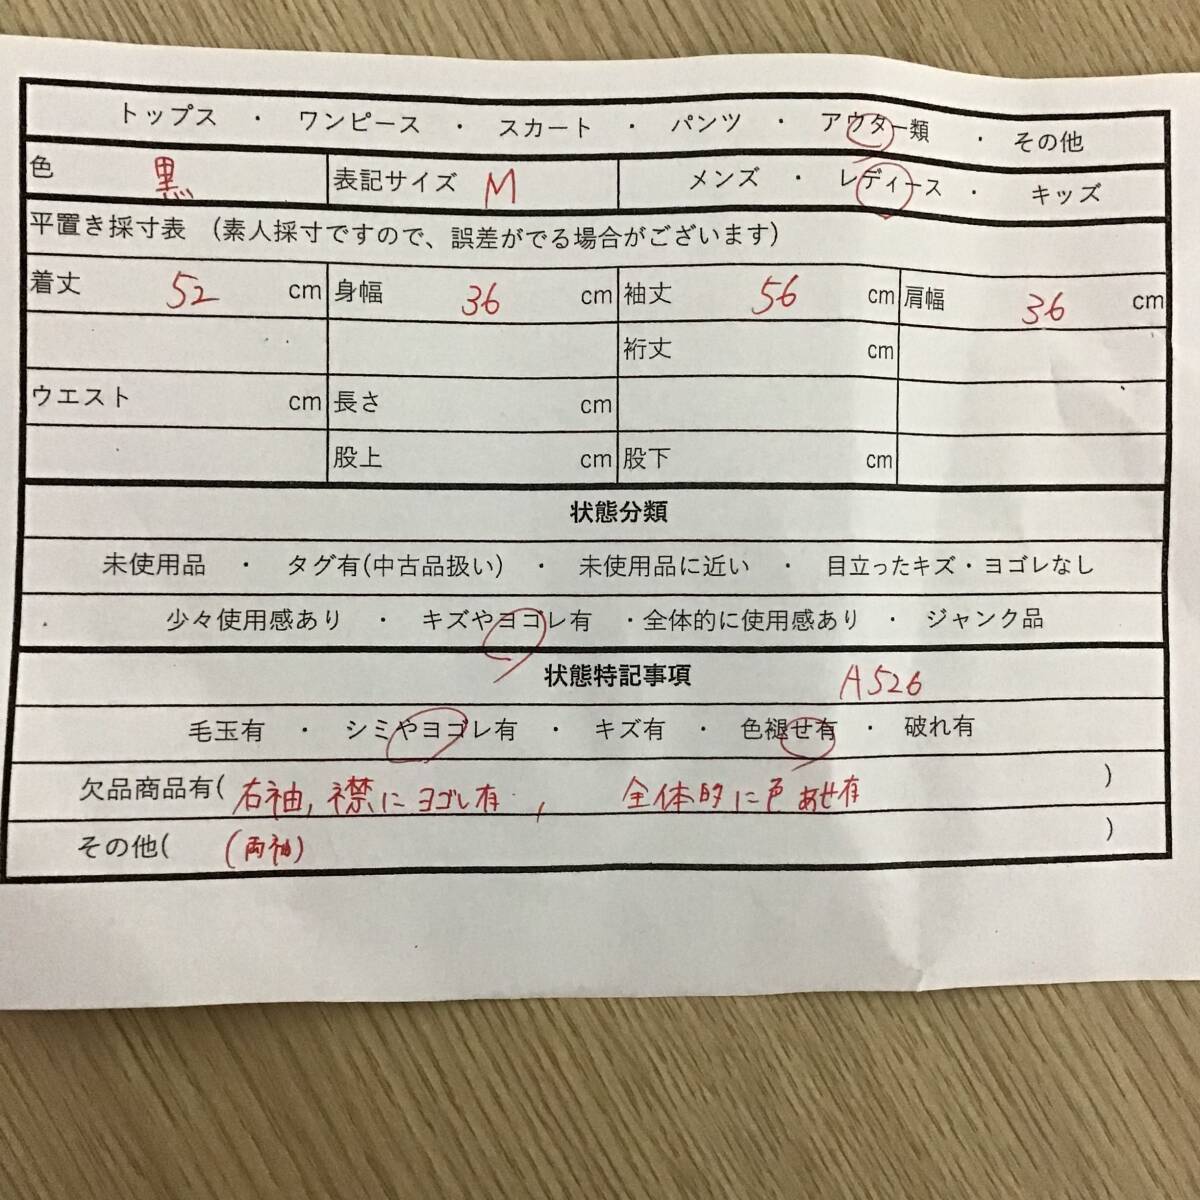 トップス ・ ワンピース ・ スカート ・ パンツ ・ アウター類 ・ その他
色 黒 表記サイズ M メンズ ・ レディース ・ キッズ
平置き採寸表 (素人採寸ですので、誤差がでる場合がございます)
着丈 52 cm 身幅 36 cm 袖丈 56 cm 肩幅 36 cm
裄丈 cm
ウエスト cm 長さ cm
股上 cm 股下 cm
状態分類
未使用品 ・ タグ有(中古品扱い) ・ 未使用品に近い ・ 目立ったキズ・ヨゴレなし
少々使用感あり ・ キズやヨゴレ有 ・全体的に使用感あり ・ ジャンク品
状態特記事項 A526
毛玉有 ・ シミやヨゴレ有 ・ キズ有 ・ 色褪せ有 ・ 破れ有
欠品商品有( 右袖, 襟にヨゴレ有, 全体的に色あせ有 )
その他( (両袖) )